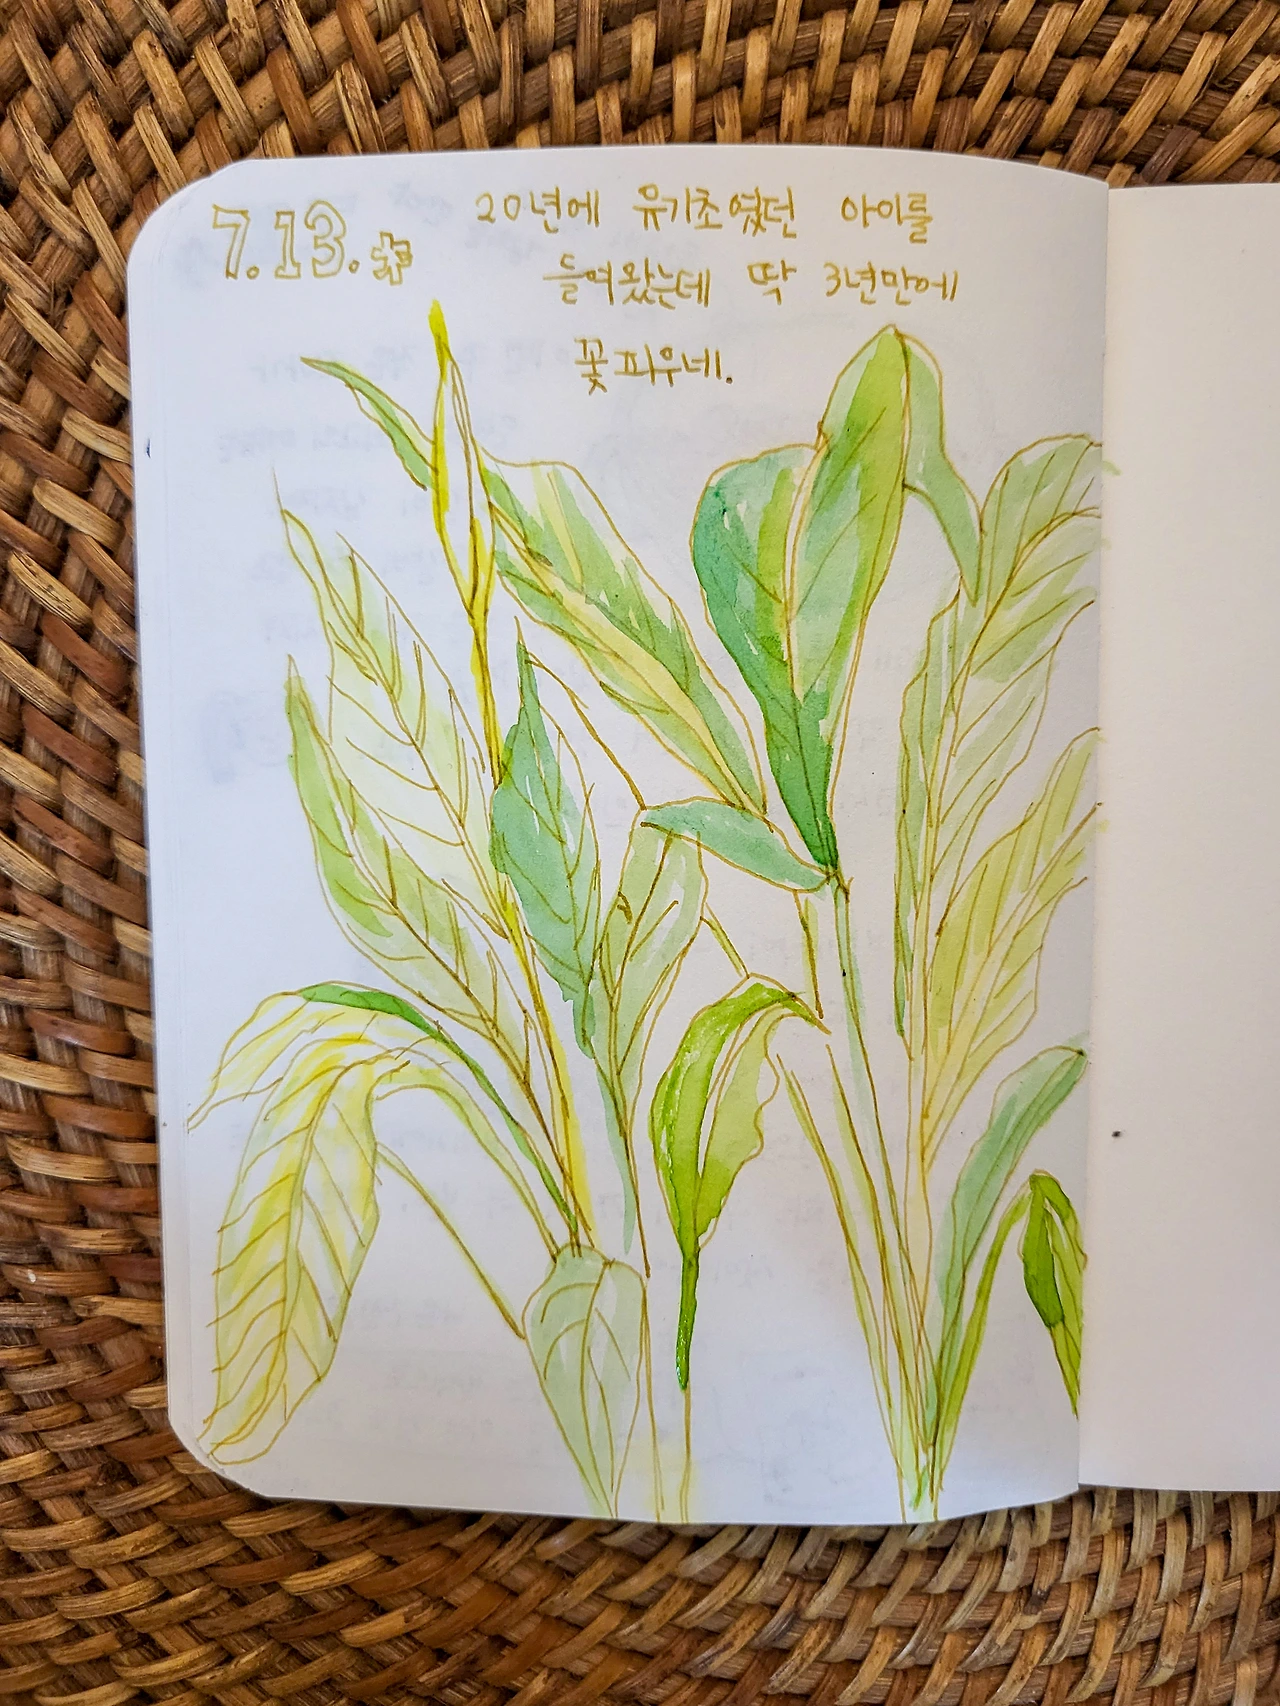 7.13.木
20년에 유기초였던 아이를
들여왔는데 딱 3년만에
꽃피우네.